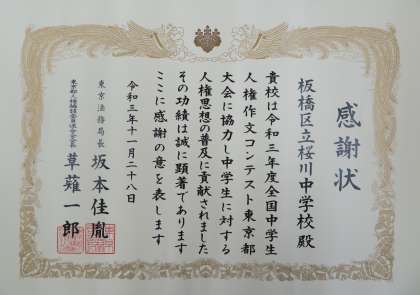 感謝状
板橋区立桜川中学校殿
貴校は令和三年度全国中学生
人権作文コンテスト東京都
大会に協力し中学生に対する
人権思想の普及に貢献されました
その功績は誠に顕著であります
ここに感謝の意を表します
令和三年十一月二十八日
東京法務局長 坂本佳胤
東京都人権擁護委員連合会会長 草薙一郎